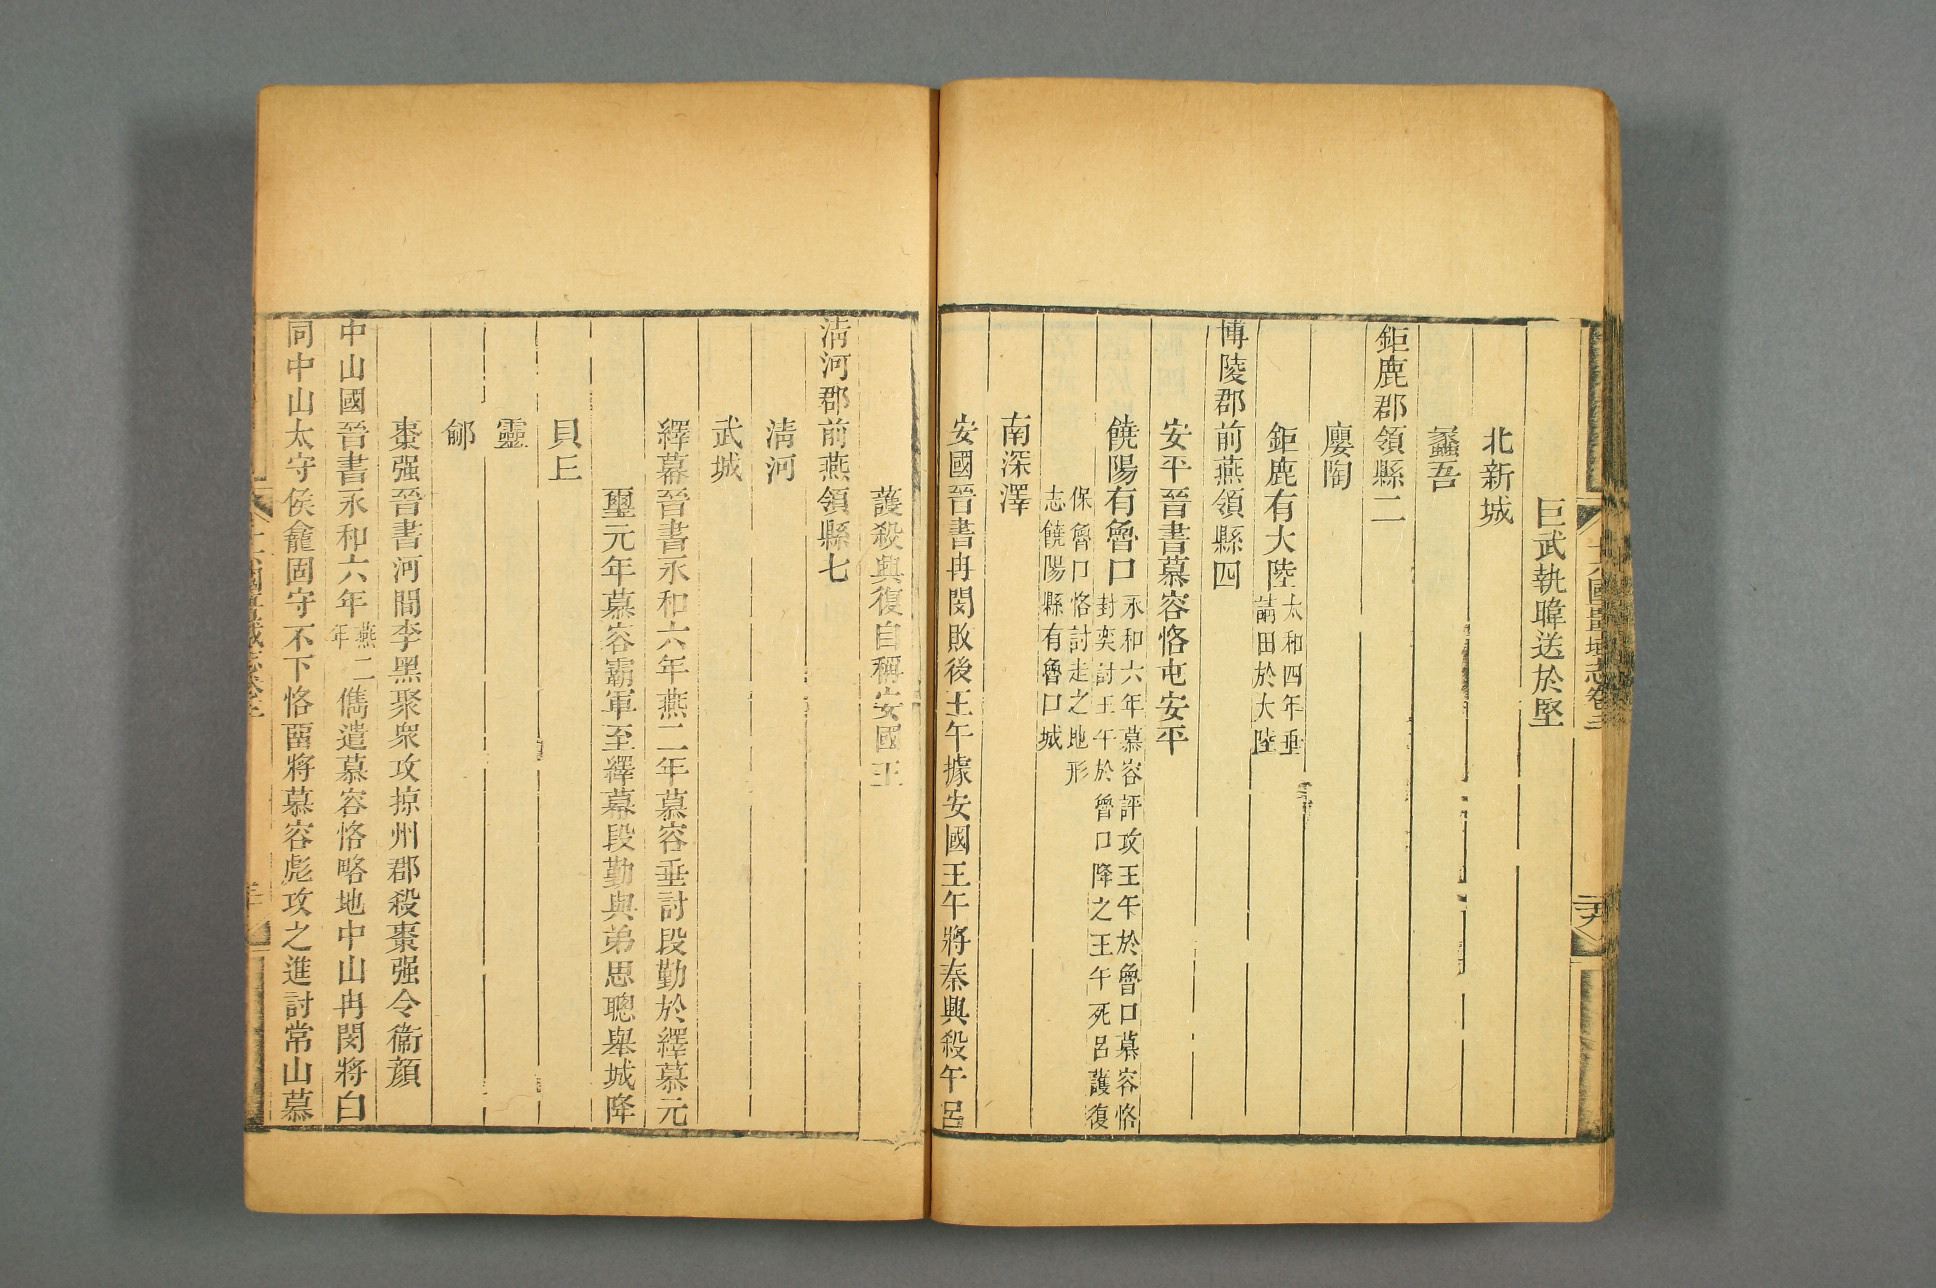 巨武執暐送於堅
北新城
蠡吾
鉅鹿郡領縣二
廮陶
鉅鹿有大陸太和四年垂請田於大陸
博陵郡前燕領縣四
安平晉書慕容恪屯安平
饒陽有魯口永和六年慕容評攻王午於魯口慕容恪封奕討王午於魯口降之王午死呂護復
保魯口恪討走之地形志饒陽縣有魯口城
南深澤
安國晉書冉閔敗後王午據安國王午將秦興殺午呂
護殺興復自稱安國王
淸河郡前燕領縣七
淸河
武城
繹幕晉書永和六年燕二年慕容垂討段勤於繹慕元
璽元年慕容霸軍至繹幕段勤與弟思聰舉城降
貝丘
靈
鄃
棗强晉書河間李黑聚衆攻掠州郡殺棗强令衞顔
中山國晉書永和六年燕二年儁遣慕容恪略地中山冉閔將白
同中山太守侯龕固守不下恪畱將慕容彪攻之進討常山慕